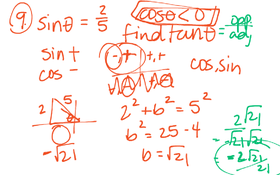 9 sinθ = 2/5
cosθ < 0
find tanθ = opp/adj
sin +
cos -
-,+ +,+
cos, sin
2 5
-√21
2² + b² = 5²
b² = 25 - 4
b = √21
2 √21
-√21 √21
= -2√21/21